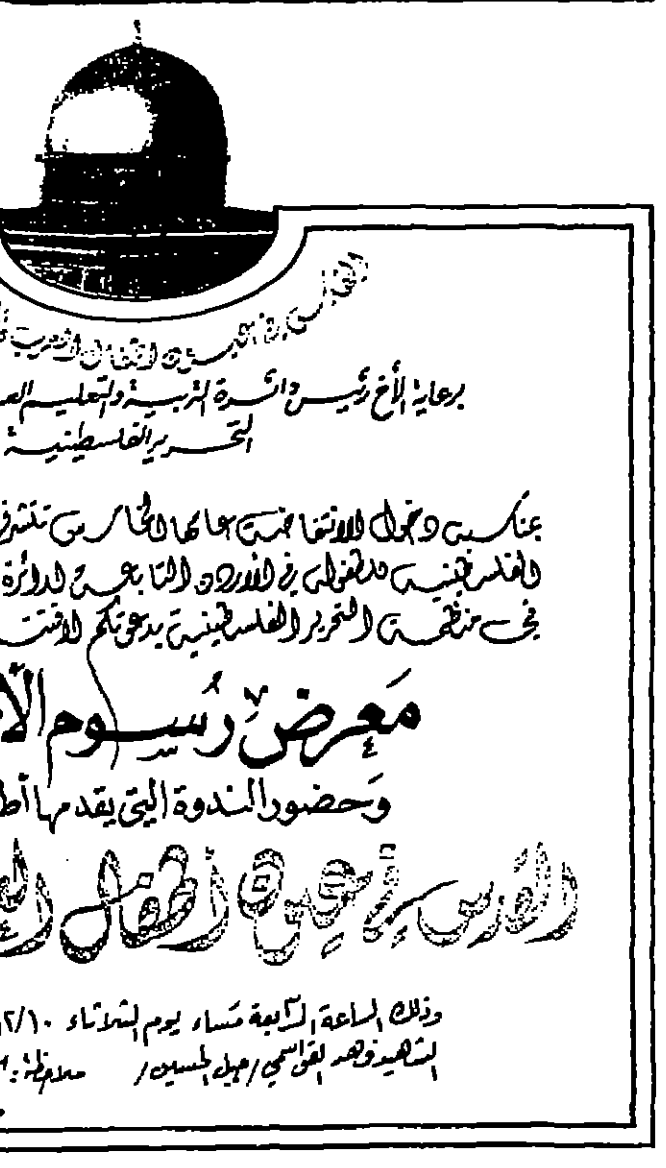 القدس في أعين أطفال
برعاية الأخ رئيس دائرة التربية والتعليم
التحرير الفلسطينية
بمناسبة دخول الانتفاضة عامها الخامس تتشرف
الفلسطينية للطفولة في الأردن التابعة لدائرة
في منظمة التحرير الفلسطينية بدعوتكم
معرض رسوم
وحضور الندوة التي يقدمها
القدس في أعين أطفال
وذلك الساعة الرابعة مساء يوم الثلاثاء ١٢/١٠
الشهيد فهد القواسمي / جبل الحسين / ملاحظة: